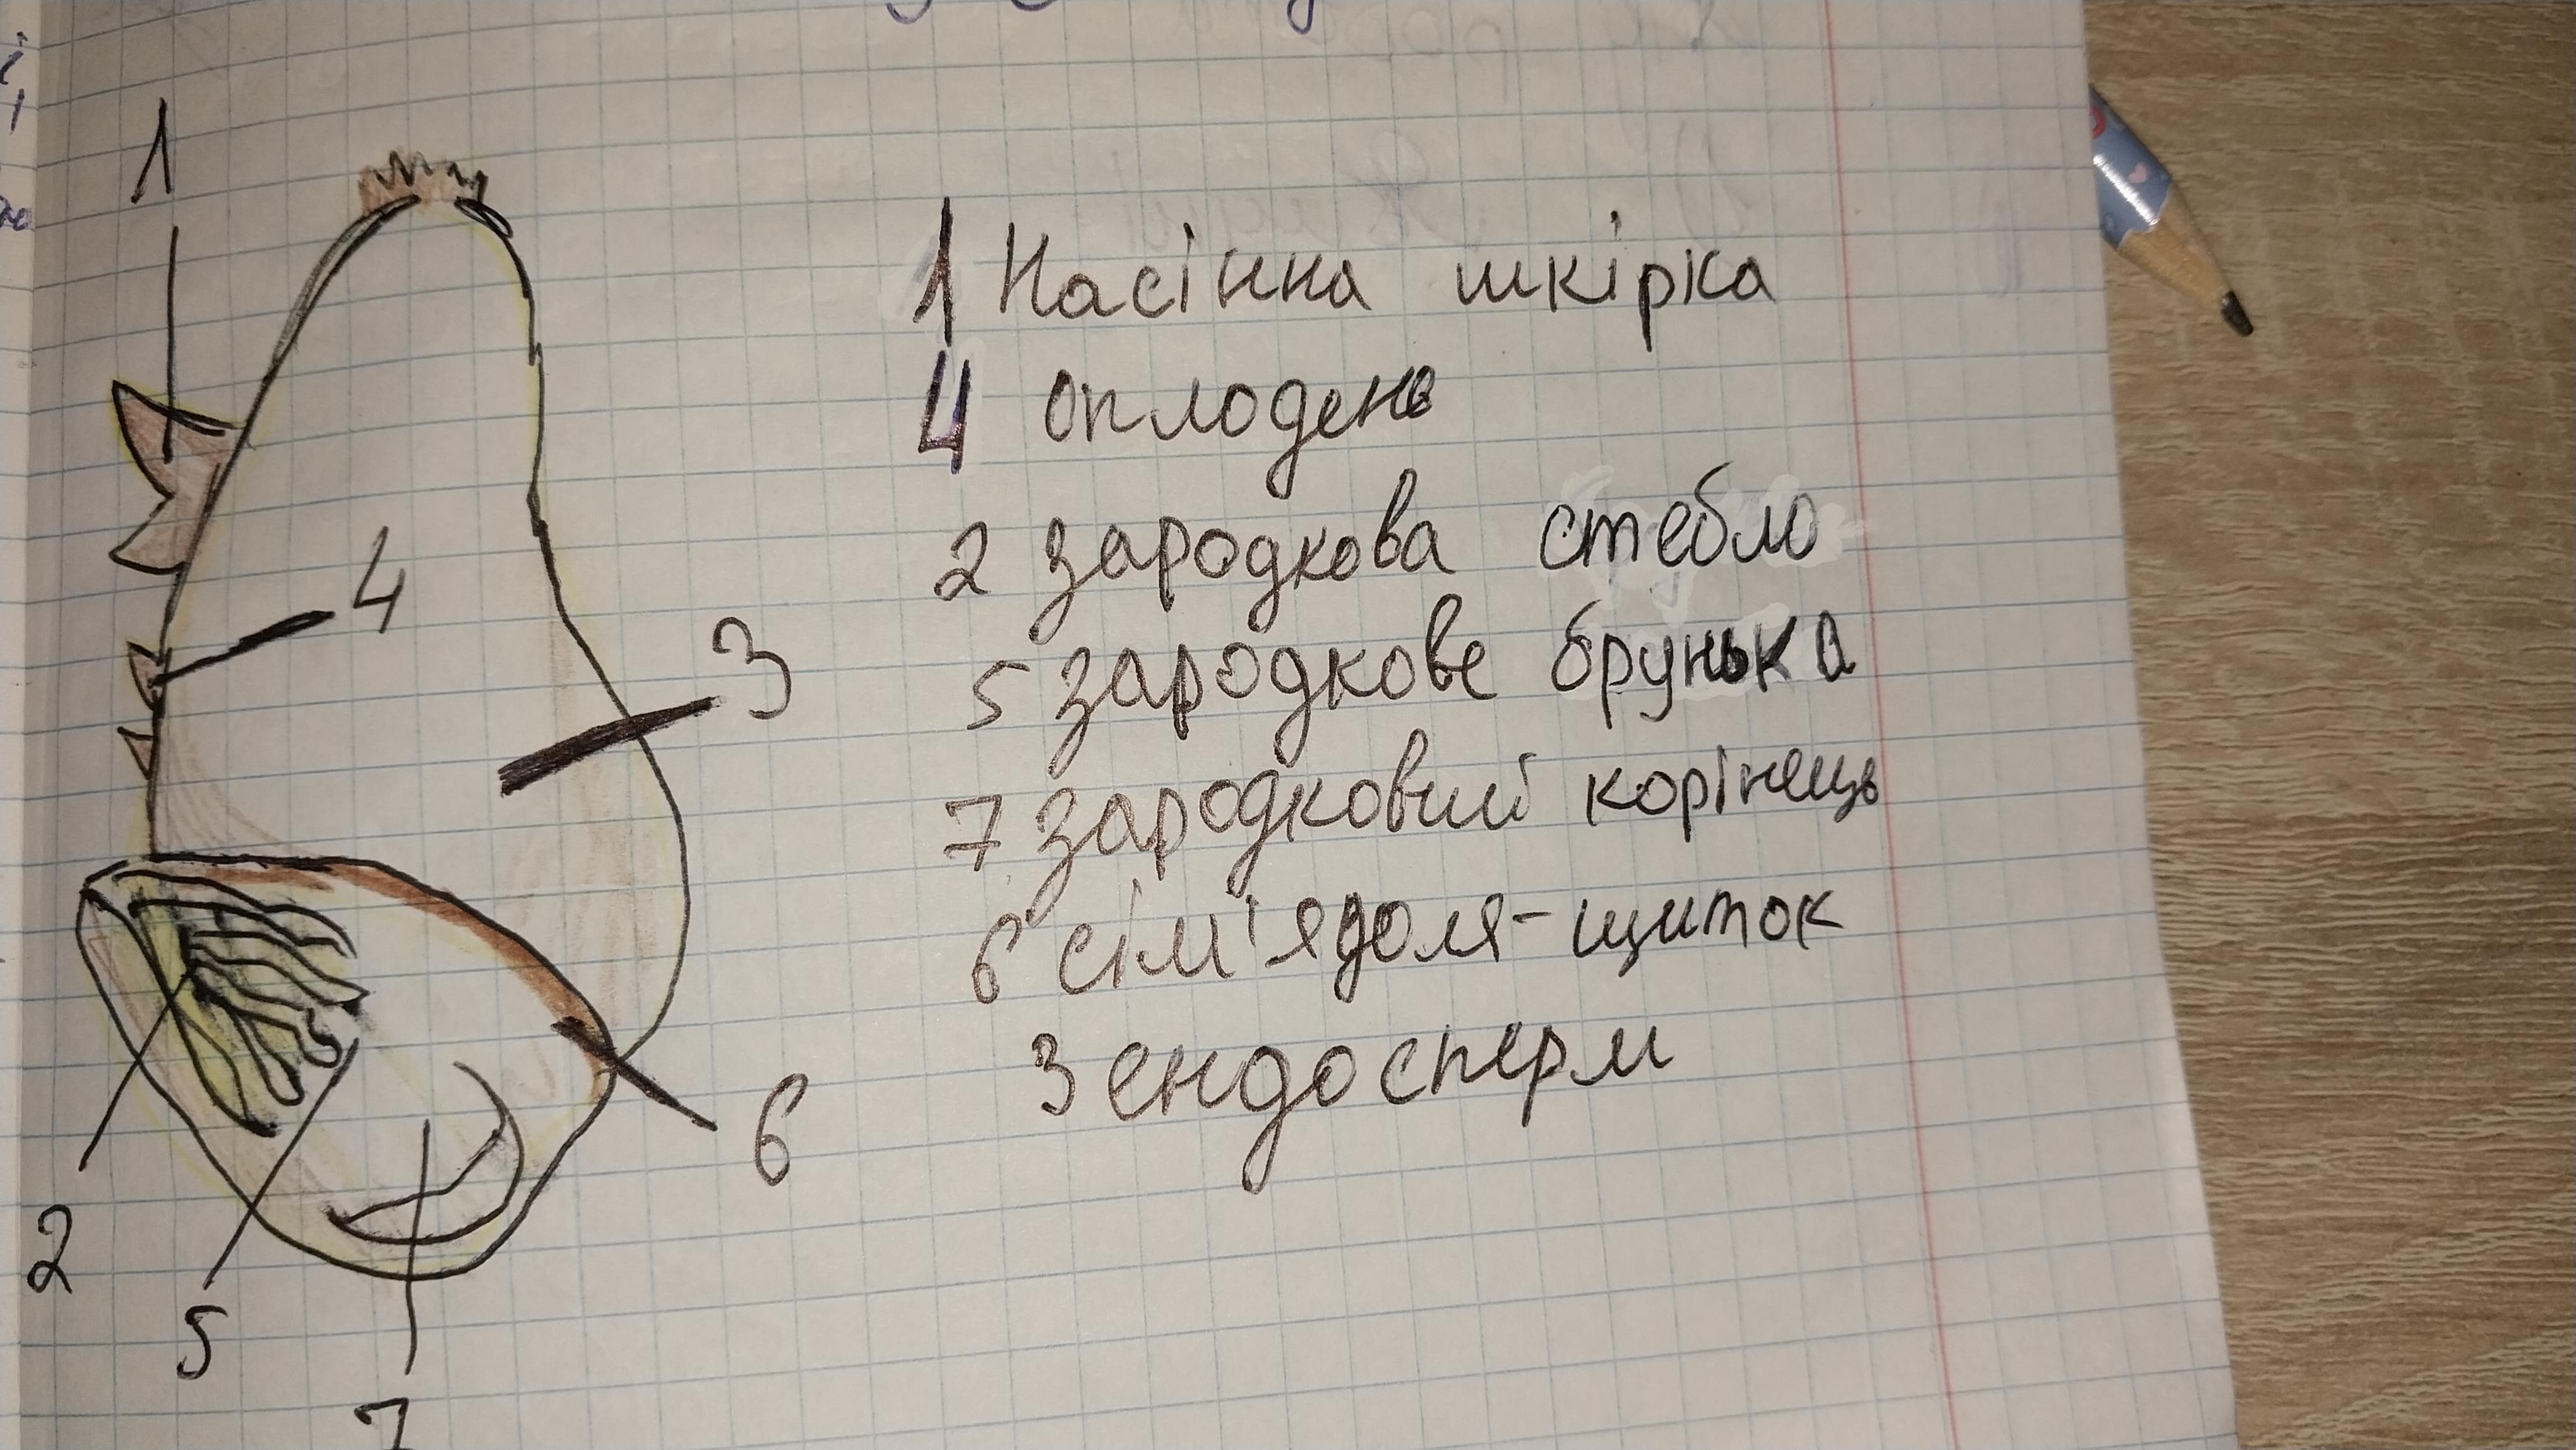 1 Насінна шкірка
4 оплодень
2 зародкова стебло
5 зародкове брунька
7 зародковий корінець
6 сім'ядоля-щиток
3 ендосперм
1
4
3
6
2
5
7